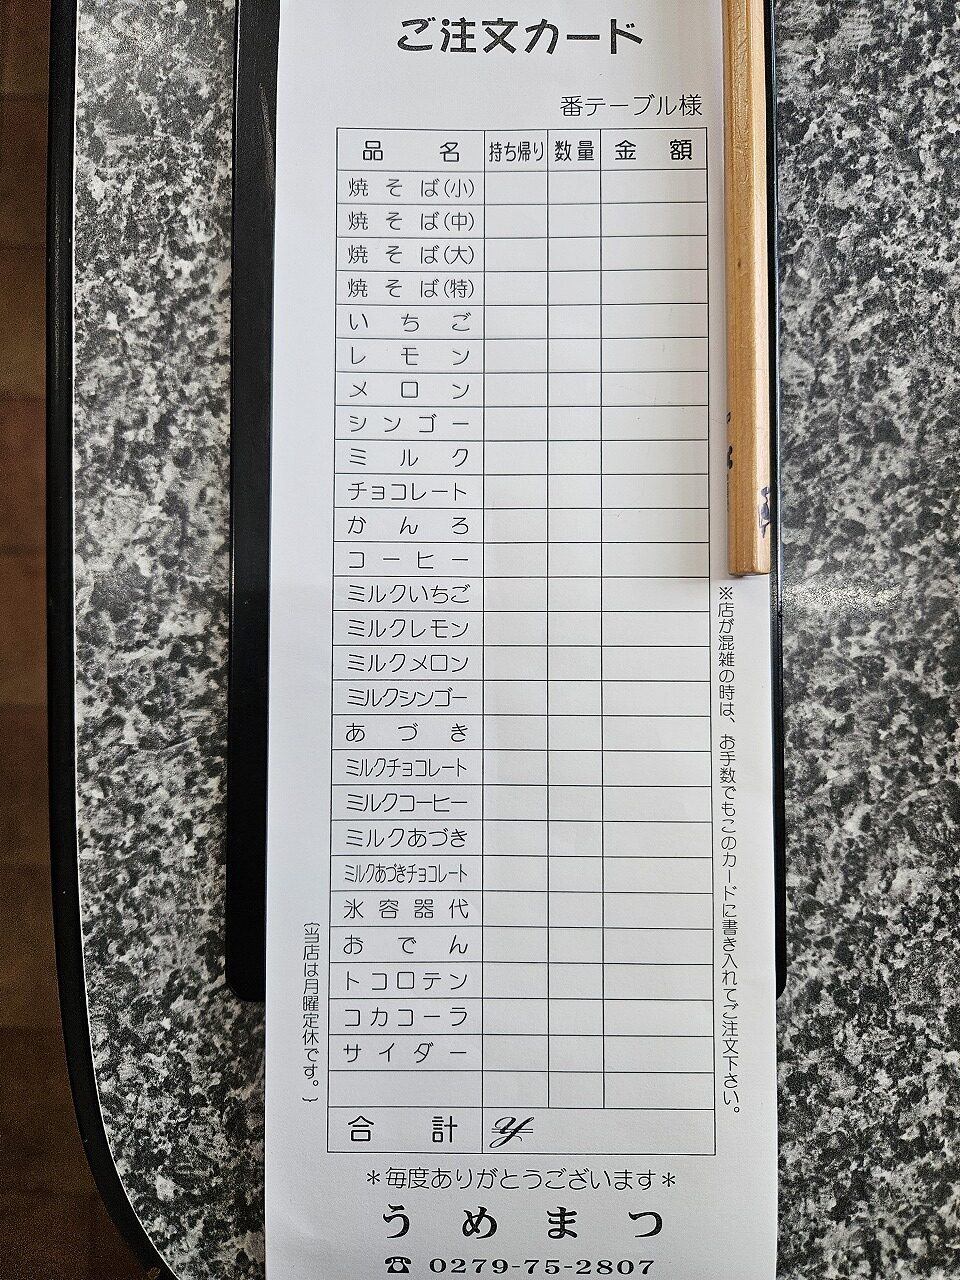 ご注文カード
番テーブル様
品名 持ち帰り 数量 金額
焼そば(小)
焼そば(中)
焼そば(大)
焼そば(特)
いちご
レモン
メロン
シンゴー
ミルク
チョコレート
かんろ
コーヒー
ミルクいちご
ミルクレモン
ミルクメロン
ミルクシンゴー
あづき
ミルクチョコレート
ミルクコーヒー
ミルクあづき
ミルクあづきチョコレート
氷容器代
おでん
トコロテン
コカコーラ
サイダー
合計 ¥
※店が混雑の時は、お手数でもこのカードに書き入れてご注文下さい。
(当店は月曜定休です。)
*毎度ありがとうございます*
うめまつ
☎ 0279-75-2807